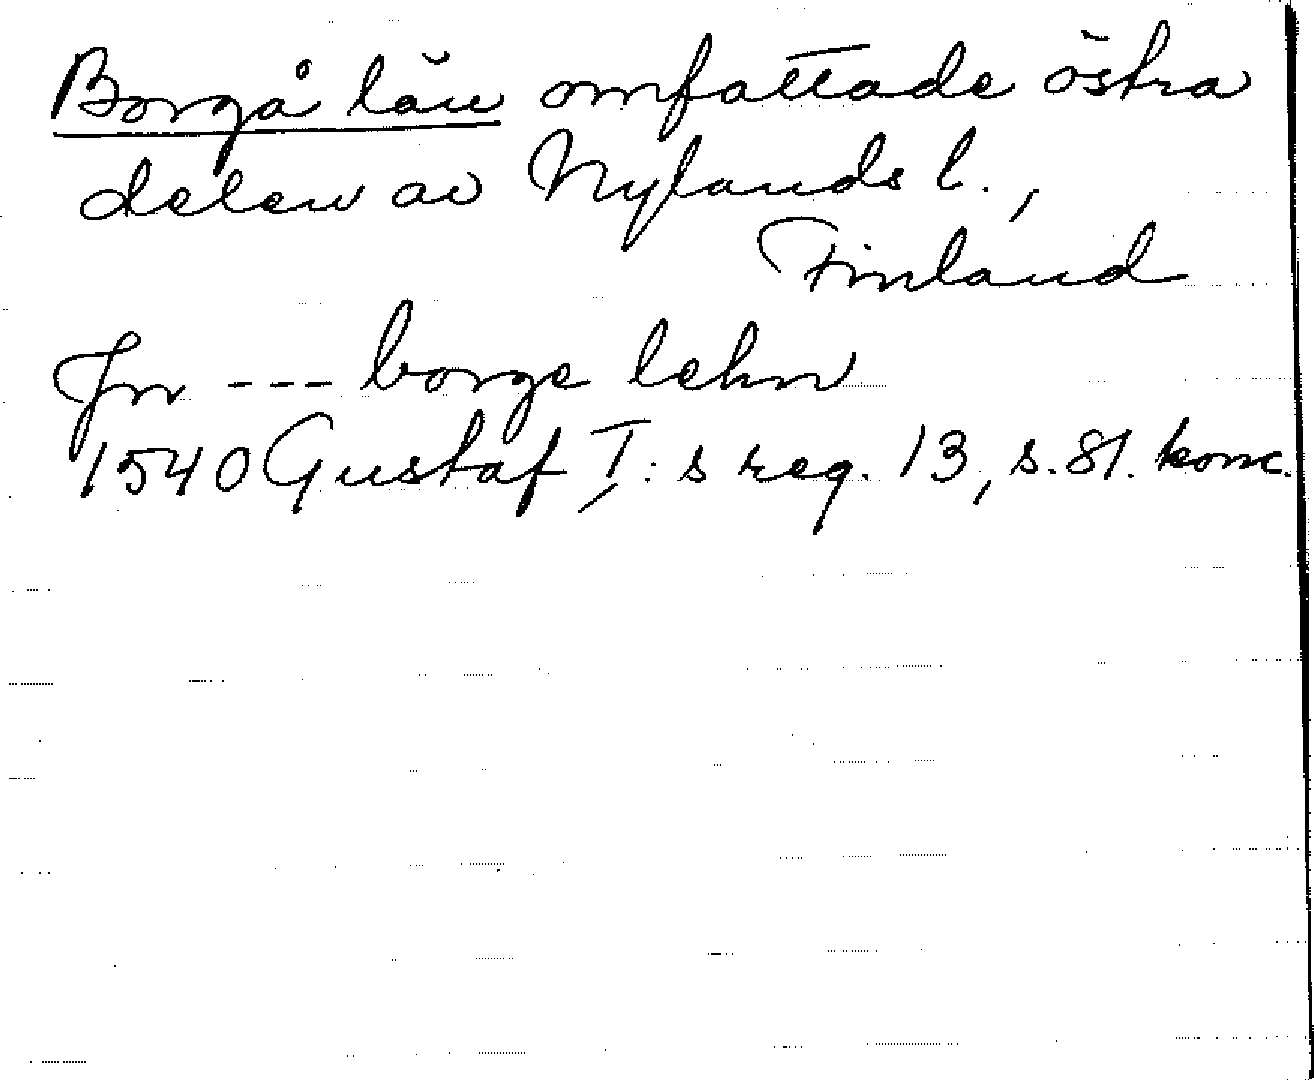 Borgå län omfattade östra
delen av Nylands l.,
Finland
Jn --- borge lehn
1540 Gustaf I:s reg. 13, s. 81. konc.